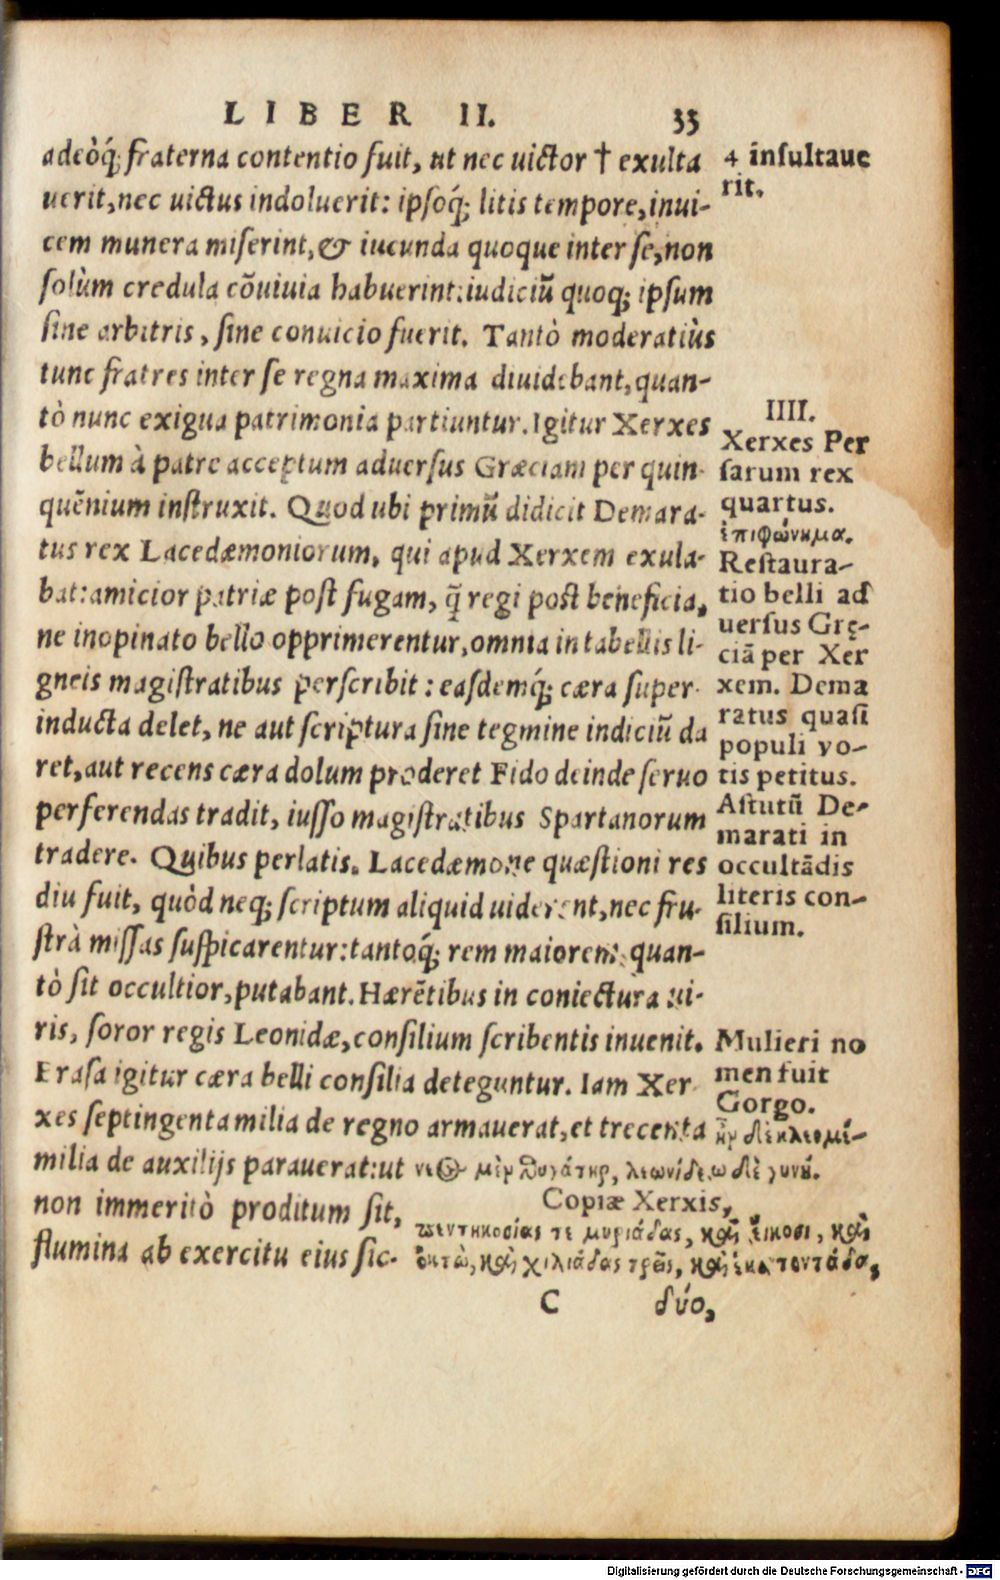 LIBER II. 33
adeòq́; fraterna contentio fuit, ut nec uictor † exulta
uerit, nec uictus indoluerit: ipsoq́; litis tempore, inui-
cem munera miserint, & iucunda quoque inter se, non
solùm credula cõuiuia habuerint: iudiciũ quoq; ipsum
sine arbitris, sine conuicio fuerit. Tantò moderatiùs
tunc fratres inter se regna maxima diuidebant, quan-
tò nunc exigua patrimonia partiuntur. Igitur Xerxes
bellum à patre acceptum aduersus Græciam per quin-
quẽnium instruxit. Quod ubi primũ didicit Demara-
tus rex Lacedæmoniorum, qui apud Xerxem exula-
bat: amicior patriæ post fugam, q̃ regi post beneficia,
ne inopinato bello opprimerentur, omnia in tabellis li-
gneis magistratibus perscribit: easdemq́; cæra super-
inducta delet, ne aut scriptura sine tegmine indiciũ da
ret, aut recens cæra dolum proderet Fido deinde seruo
perferendas tradit, iusso magistratibus Spartanorum
tradere. Quibus perlatis. Lacedæmone quæstioni res
diu fuit, quòd neq; scriptum aliquid uiderent, nec fru-
strà missas suspicarentur: tantoq́; rem maiorem, quan-
tò sit occultior, putabant. Hærẽtibus in coniectura ui-
ris, soror regis Leonidæ, consilium scribentis inuenit.
Erasa igitur cæra belli consilia deteguntur. Iam Xer-
xes septingenta milia de regno armauerat, et trecenta
milia de auxilijs parauerat: ut
non immeritò proditum sit,
flumina ab exercitu eius sic-
4 insultaue
rit.
IIII.
Xerxes Per
sarum rex
quartus.
ἐπιφώνημα.
Restaura-
tio belli ad
uersus Grę-
ciã per Xer
xem. Dema
ratus quasi
populi vo-
tis petitus.
Astutũ De-
marati in
occultãdis
literis con-
silium.
Mulieri no
men fuit
Gorgo.
ἣν δὲ κλεομέ-
νεος μὲν θυγάτηρ, λεωνίδεω δὲ γυνή.
Copiæ Xerxis,
πεντηκοσίας τε μυριάδας, καὶ εἴκοσι, καὶ
ὀκτὼ, καὶ χιλιάδας τρεῖς, καὶ ἑκατοντάδας
C δύο,
Digitalisierung gefördert durch die Deutsche Forschungsgemeinschaft - DFG